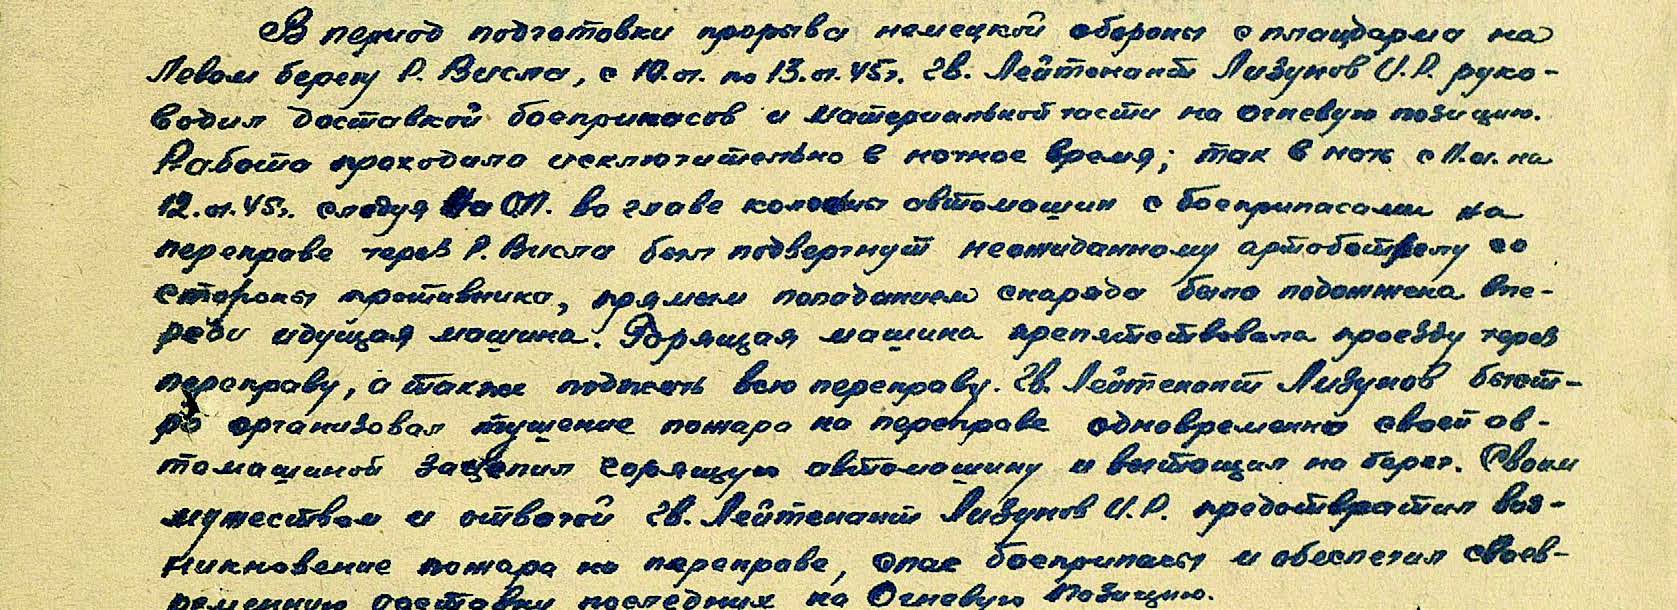 В период подготовки прорыва немецкой обороны с плацдарма на
Левом берегу р. Висла, с 10.01. по 13.01.45г. Гв. Лейтенант Лизунов И.Р. руко-
водил доставкой боеприпасов и материальной части на огневую позицию.
Работа проходила исключительно в ночное время; так в ночь с 11.01. на
12.01.45г. следуя на ОП. во главе колонны автомашин с боеприпасами на
переправе через р. Висла был подвергнут неожиданному артобстрелу со
стороны противника, прямым попаданием снаряда была подожжена впе-
реди идущая машина. Горящая машина препятствовала проезду через
переправу, а также поджечь всю переправу. Гв. Лейтенант Лизунов быст-
ро организовал тушение пожара на переправе одновременно своей ав-
томашиной зацепил горящую автомашину и вытащил на берег. Своим
мужеством и отвагой Гв. Лейтенант Лизунов И.Р. предотвратил воз-
никновение пожара на переправе, спас боеприпасы и обеспечил своев-
ременную доставку последних на Огневую Позицию.